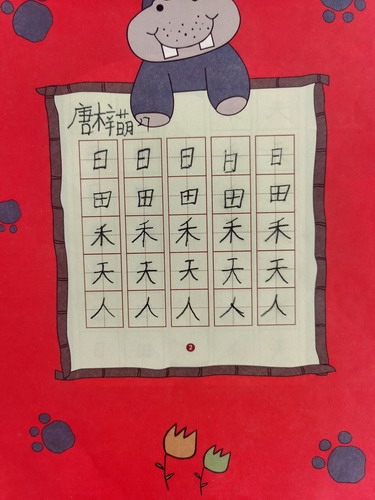 唐梓萌 27
日 日 日 日 日
田 田 田 田 田
禾 禾 禾 禾 禾
天 天 天 天 天
人 人 人 人 人
2